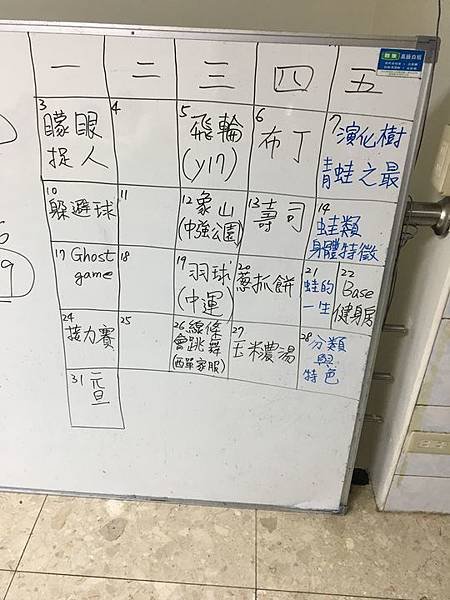 一 二 三 四 五
3 矇眼
捉人
4
5 飛輪
(y17)
6 布丁
7 演化樹
青蛙之最
10 躲避球
11
12 象山
(中強公園)
13 壽司
14 蛙類
身體特徵
17 Ghost
game
18
19 羽球
(中運)
20 蔥抓餅
21 蛙的
一生
22 Base
健身房
24 接力賽
25
26 線條
會跳舞
(西單家服)
27 玉米濃湯
28 分類
與
特色
31 元
旦
9